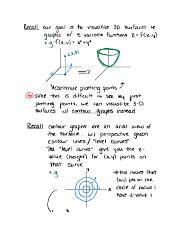 Recall our goal is to visualize 3D surfaces ie
graphs of 2 variable functions z = f(x,y)
e.g. f(x,y) = x² + y²
plotting points
since this is difficult to see by just
plotting points, we can visualize 3-D
surfaces w/ contour graphs instead
Recall contour graphs are an aerial view of
the surface w/ perspective given
contour lines / "level curves"
The "level curves" give you the
z-value (height) for (x,y) points on
that curve
e.g.
this means that
(x,y) pts on the
circle of radius 1
have z-value 1